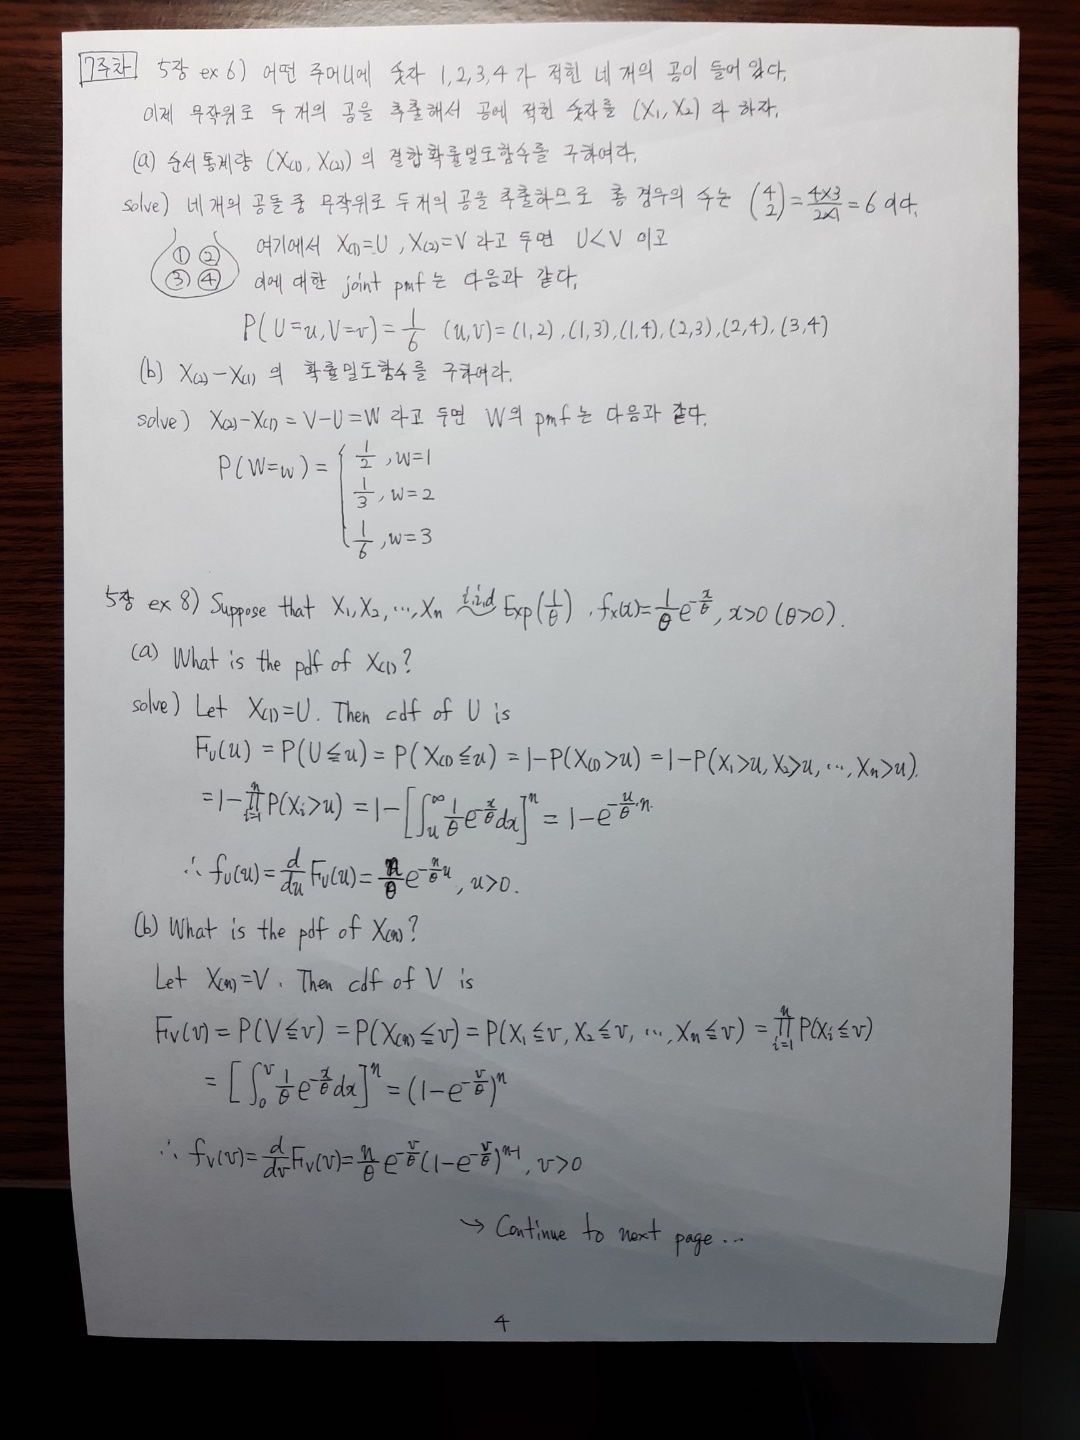 7주차 5장 ex 6) 어떤 주머니에 숫자 1,2,3,4가 적힌 네 개의 공이 들어 있다.
이제 무작위로 두 개의 공을 추출해서 공에 적힌 숫자를 (X₁, X₂)라 하자.
(a) 순서통계량 (X₍₁₎, X₍₂₎)의 결합확률밀도함수를 구하여라.
solve) 네 개의 공들 중 무작위로 두 개의 공을 추출하므로 총 경우의 수는 (4 2) = 4×3/2×1 = 6이다.
① ② 여기에서 X₍₁₎=U, X₍₂₎=V 라고 두면 U<V 이고
③ ④ 이에 대한 joint pmf는 다음과 같다.
P(U=u, V=v) = 1/6 (u,v) = (1,2), (1,3), (1,4), (2,3), (2,4), (3,4)
(b) X₍₂₎-X₍₁₎의 확률밀도함수를 구하여라.
solve) X₍₂₎-X₍₁₎ = V-U = W 라고 두면 W의 pmf는 다음과 같다.
P(W=w) = { 1/2, w=1
1/3, w=2
1/6, w=3
5장 ex 8) Suppose that X₁, X₂, ..., Xₙ i.i.d ~ Exp(1/θ), fₓ(x) = 1/θ e^(-x/θ), x>0 (θ>0).
(a) What is the pdf of X₍₁₎?
solve) Let X₍₁₎=U. Then cdf of U is
F_U(u) = P(U≦u) = P(X₍₁₎≦u) = 1-P(X₍₁₎>u) = 1-P(X₁>u, X₂>u, ..., Xₙ>u).
= 1-∏_{i=1}^{n} P(Xᵢ>u) = 1-[∫_u^∞ 1/θ e^(-x/θ) dx]ⁿ = 1-e^(-u/θ·n).
∴ f_U(u) = d/du F_U(u) = n/θ e^(-n/θ u), u>0.
(b) What is the pdf of X₍ₙ₎?
Let X₍ₙ₎=V. Then cdf of V is
F_V(v) = P(V≦v) = P(X₍ₙ₎≦v) = P(X₁≦v, X₂≦v, ..., Xₙ≦v) = ∏_{i=1}^{n} P(Xᵢ≦v)
= [∫_0^v 1/θ e^(-x/θ) dx]ⁿ = (1-e^(-v/θ))ⁿ
∴ f_V(v) = d/dv F_V(v) = n/θ e^(-v/θ) (1-e^(-v/θ))^(n-1), v>0
→ Continue to next page...
4